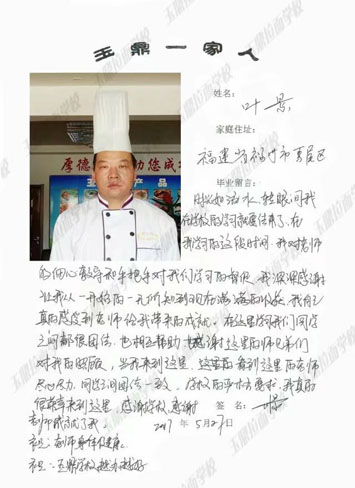 玉鼎一家人
姓名：
叶景
家庭住址：
福建省福州市晋安区
毕业留言：
时光如流水，转眼间我
在学校的学习就要结束了。在
我学习的这段时间，我对老师
的细心教导和手把手对我们学习的
让我从一开始的一无所知到现在满满的收获，我们
真的感受到老师给我带来的成就。在这里学习我们同学
之间都很团结，也相互帮助，感谢这里的师兄弟们
对我的照顾，当我来到这里，这里的老师
尽心尽力，同学间团结一致，学校的要求，我真的
很荣幸来到这里，感谢学校，感谢
老师成就了我。
签名：
叶景
2017年5月27日
祝：老师身体健康，
祝：玉鼎学校越办越好
厚德
助您成
产品
玉鼎拉面学校